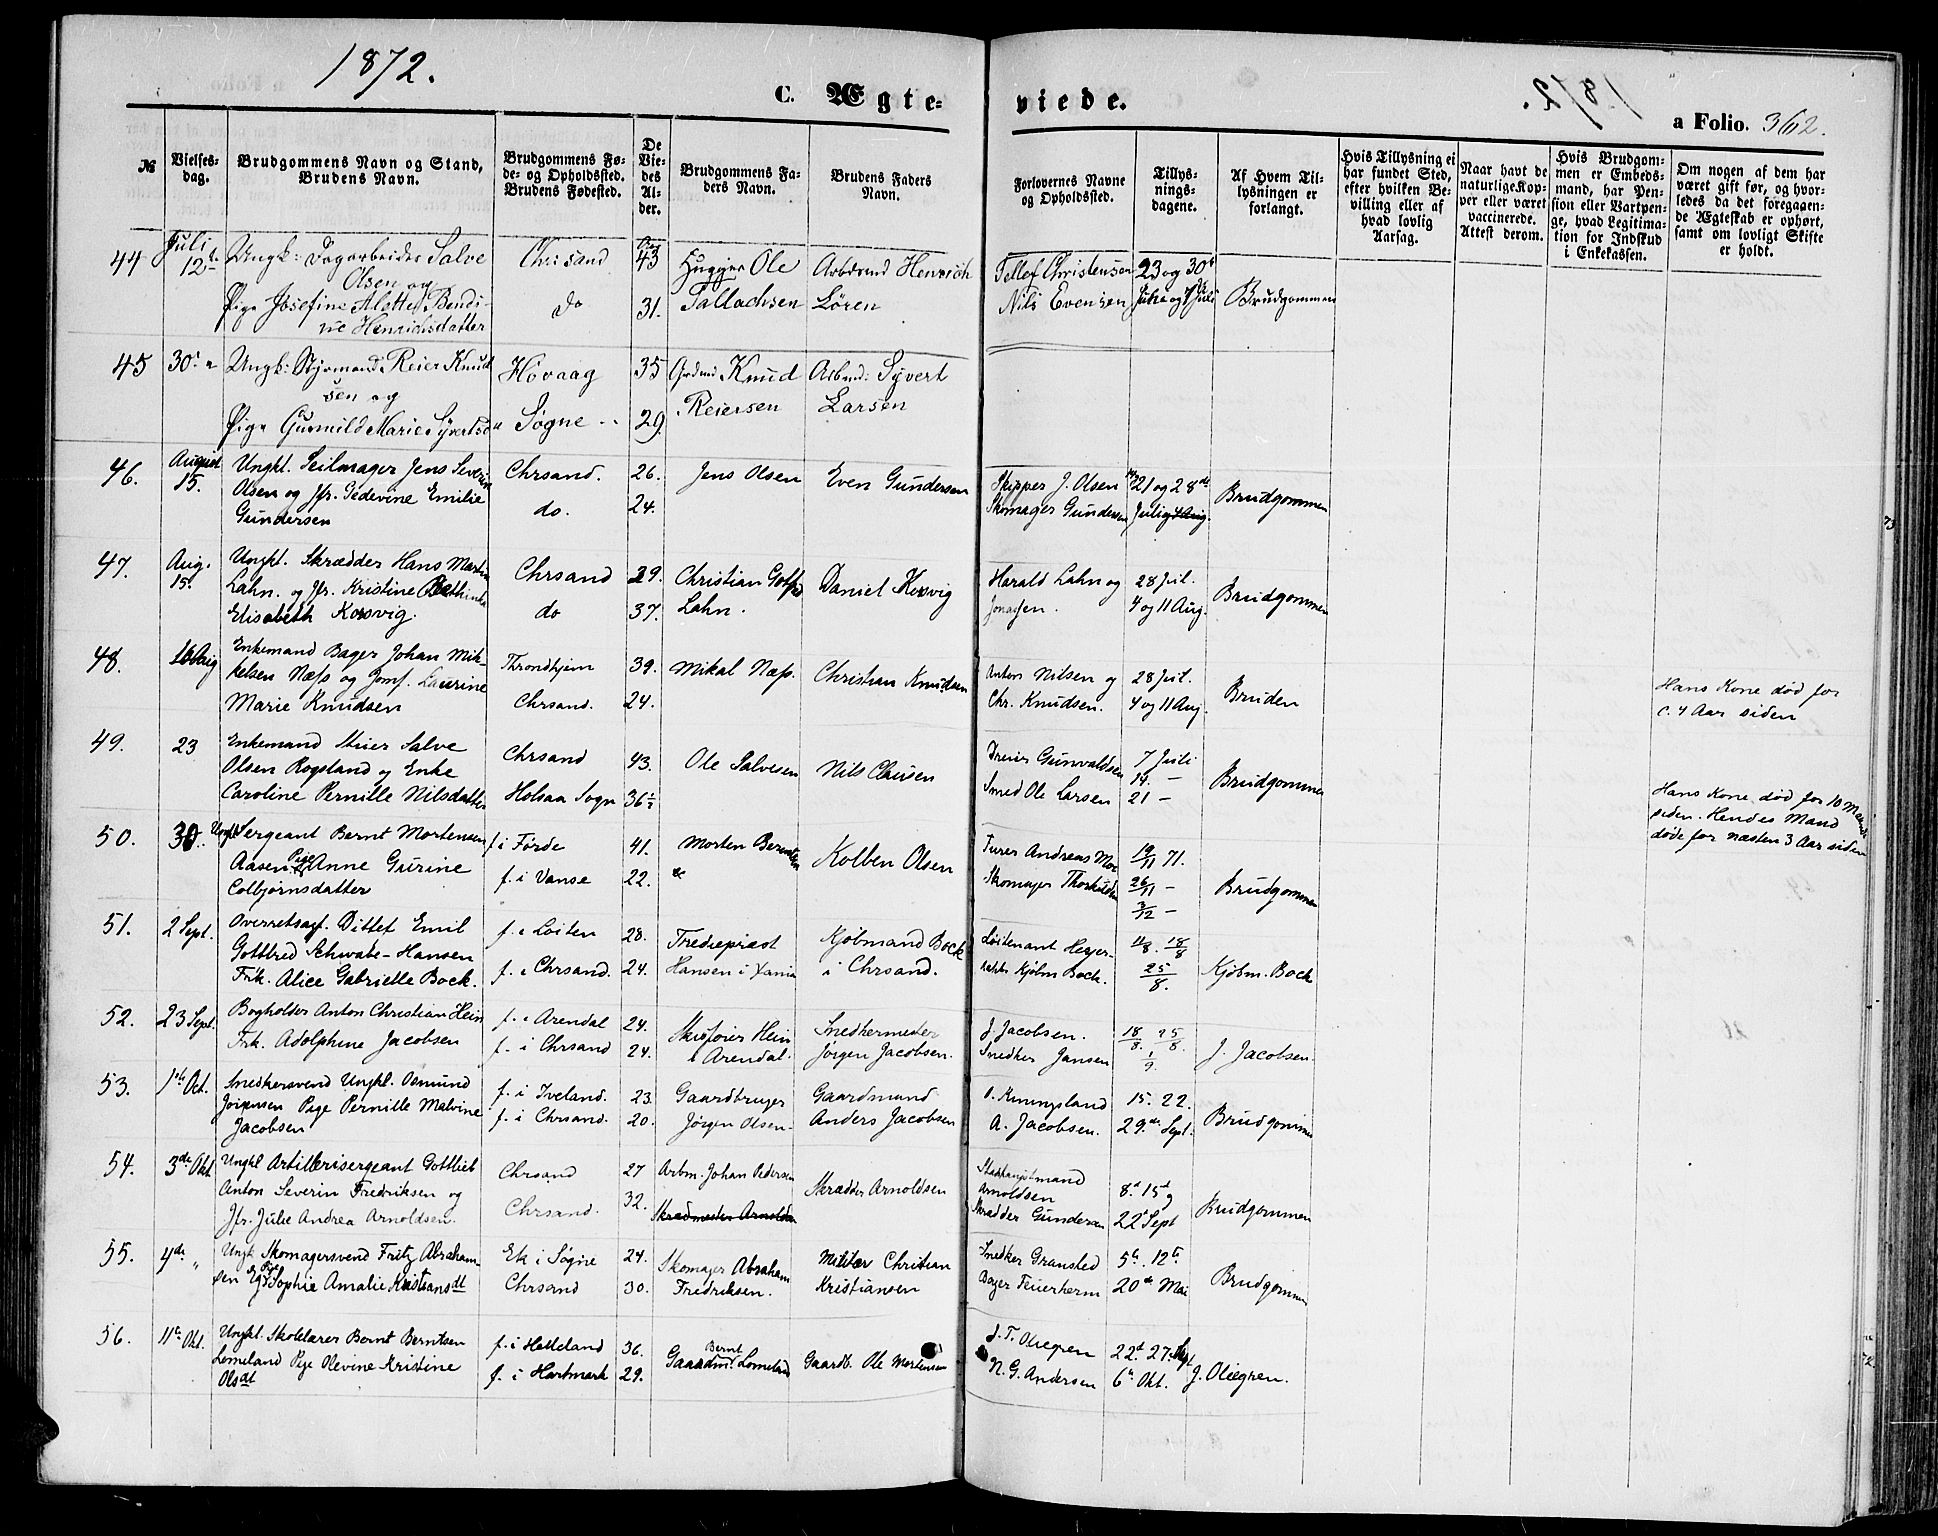 1872.
C. Ægte-
viede.
a Folio. 362.
№
Vielses-
dag.
Brudgommens Navn og Stand,
Brudens Navn.
Brudgommens Fø-
de- og Opholdssted.
Brudens Fødested.
De
Vie-
des
Al-
der.
Brudgommens Fa-
ders Navn.
Brudens Faders
Navn.
Forlovernes Navne
og Opholdssted.
Tillys-
nings-
dagene.
Af Hvem Til-
lysningen er
forlangt.
Hvis Tillysning ei
har fundet Sted,
efter hvilken Be-
villing eller af
hvad lovlig
Aarsag.
Naar havt de
naturlige Kop-
per eller været
vaccinerede.
Attest derom.
Hvis Brudgom-
men er Embeds-
mand, har Pen-
sion eller Vartpen-
ge, hvad Legitima-
tion for Indskud
i Enkekassen.
Om nogen af dem har
været gift før, og hvor-
ledes da det foregaaen-
de Ægteskab er ophørt,
samt om lovligt Skifte
er holdt.
44 Juli 12te
Ungk: Dagarbeider Salve
Olsen og
Pige Josefine Alette Bendi-
ne Henrichsdatter
Chrisand
do
43
31.
Hugger Ole
Tallachsen
Arbdmd Henrich
Løren
Tellef Christensen
Nils Evensen
23 og 30t
Juni og 7 Juli
Brudgommen
45 30t "
Ungk: Styrmand Reier Knud
sen og
Pige Gunnild Marie Syvertsen
Høvaag
Søgne
35
29.
Grdmd Knud
Reiersen
Arbmd: Syvert
Larsen
46. August 15.
Ungkl. Seilmager Jens Severin
Olsen og Jfr. Gedevine Emilie
Gundersen
Chrsand.
do.
26.
24.
Jens Olsen
Even Gundersen
Skipper J. Olsen
Skomager Gundersen
21 og 28de
Juli og 4 Aug.
Brudgommen
47. Aug. 15.
Ungkl. Skrædder Hans Martin
Lahn. og Jfr. Kristine Bathinka
Elisabeth Korsvig.
Chrsand
do
29.
37.
Christian
Lahn.
Daniel Kosvig
Harald Lahn og
28 Jul.
4 og 11 Aug.
Brudgommen
48. 16 Aug
Enkemand Bager Johan Mik-
kelsen Næss og Jomf. Laurine
Marie Knudsen
Throndhjem
Chrsand.
39.
24.
Mikal Næss.
Christian Knudsen
Anton Nilsen og
Chr. Knudsen.
28 Jul.
4 og 11 Aug.
Bruden
Hans Kone død for
c. 4 Aar siden
49. 23
Enkemand Salve
Olsen Rogsland og Enke
Caroline Pernille Nilsdatter
Chrsand
Holsaa Sogn
43.
36½
Ole Salvesen
Nils Clausen
Gunvaldsen
Smed Ole Larsen
7 Juli
14 -
21 -
Brudgommen
Hans Kone død for 10 Maaneder
siden. Hendes Mand
døde for næsten 3 Aar siden
50. 30.
Ungkl Sergeant Bernt Mortensen
Aasen Pige Anne Gurine
Colbjørnsdatter
f. i Førde
f. i Vanse
41.
22.
Morten Berentsen
Kolben Olsen
Furer Andreas Moe
Skomager Thorkildsen
19/11 71.
26/11 -
3/12 -
Brudgommen
51. 2 Sept.
Overretssagf. Dittef Emil
Gottfred Schwabe-Hansen
Frk. Alice Gabrielle Bock.
f. i Løiten
f. i Chrsand.
28.
24.
Hansen i Xania
Kjøbmand Bock
i Chrsand.
Løitenant
Kjøbm Bock.
11/8. 18/8
25/8.
Kjøbm. Bock
52. 23 Sept.
Bogholder Anton Christian Hein
Frk. Adolphine Jacobsen
f. i Arendal
f. i Chrsand
24.
24.
Skibsfører Hein
i Arendal.
Snedkermester
Jørgen Jacobsen.
J. Jacobsen.
Snedker Jansen
18/8. 25/8.
1/9.
J. Jacobsen.
53. 1ste Oct.
Snedkersvend Ungkl. Osmund
Jørgensen Pige Pernille Malvine
Jacobsen
f. i Iveland.
f. i Chrsand.
23.
20.
Gaardbruger
Jørgen Olsen.
Gaardmand
Anders Jacobsen
A. Jacobsen.
15. 22.
29.de Sept.
Brudgommen
54. 3de Okt
Ungkl Artillerisergeant Gottlieb
Anton Severin Fredriksen og
Jfr. Julie Andrea Arnoldsen.
Chrsand
Chrsand.
27
32.
Arbm. Johan Pedersen
Skrædmester Arnoldsen
Skrædder Arnoldsen
Arnoldsen
Skrædder Gundersen
8.d 15d og
22d Sept
Brudgommen
55. 4de "
Ungk Skomagersvend Fritz Abraham-
sen og Pige Sophie Amalie Kristiansdt
Ek i Søgne
Chrsand
24.
30.
Skomager Abraham
Fredriksen.
Militær Christian
Kristiansen
Snedker Gransted
Bager Feuerherm
5te. 12te
20de Mai
Brudgommen
56. 11te Okt.
Ungkl. Skolelærer Bernt Berntsen
Lomeland Pige Olevine Kristine
Olsdt
f. i Helleland
f. i Hartmark
36.
29.
Gaardm. Bernt Lomeland
Gaardb. Ole Mortensen
J. T. Oliegren
N. G. Andersen
22.d 27. Sept
6te Okt.
J. Oliegren.